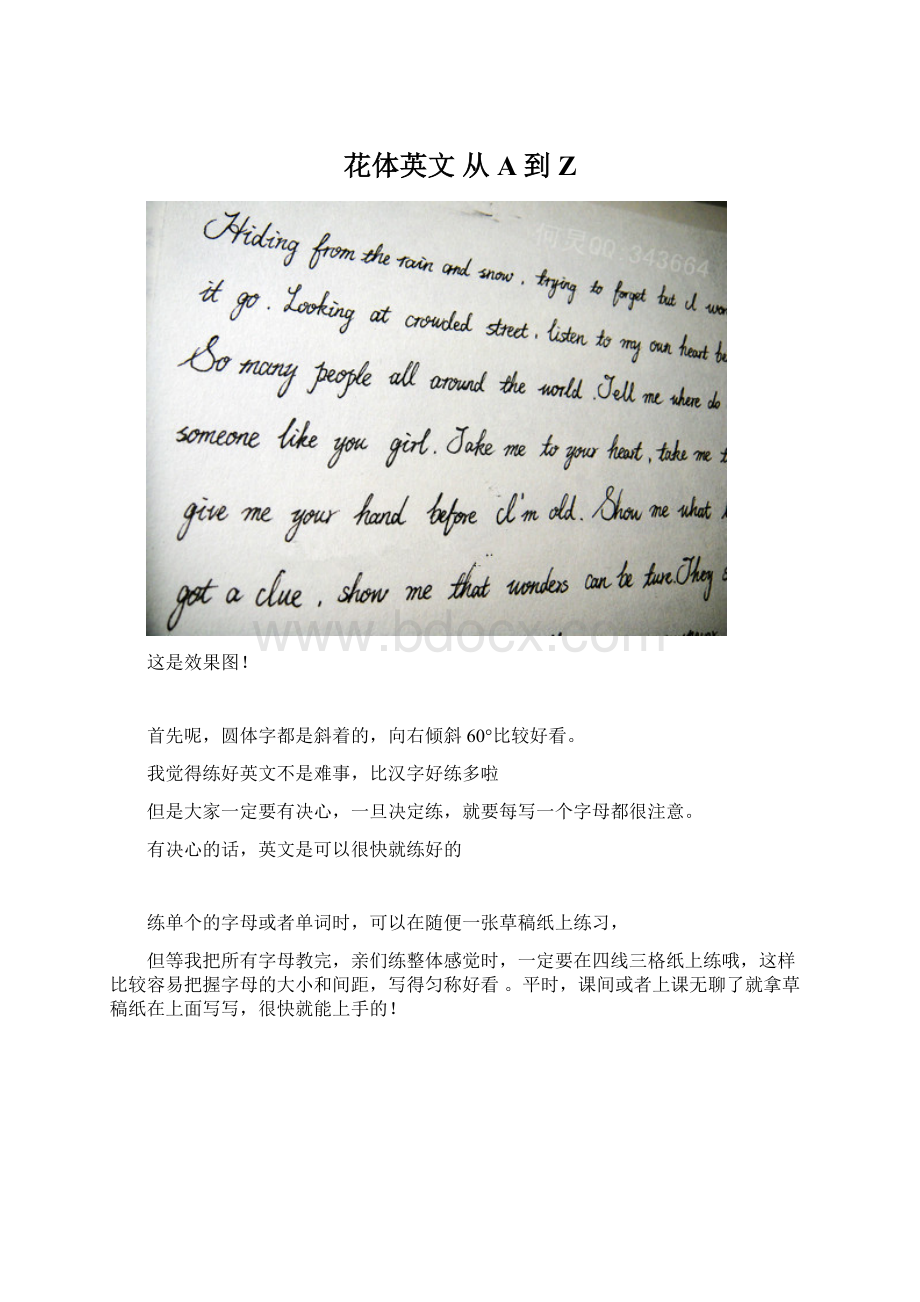 花体英文 从 A 到 Z
何炅QQ:343664
Hiding from the rain and snow, trying to forget but I won
it go. Looking at crowded street, listen to my own heart be
So many people all around the world. Tell me where do
someone like you girl. Take me to your heart, take me t
give me your hand before I'm old. Show me what
got a clue, show me that wonders can be ture. They
www.bdocx.com
这是效果图！
首先呢，圆体字都是斜着的，向右倾斜 60°比较好看。
我觉得练好英文不是难事，比汉字好练多啦
但是大家一定要有决心，一旦决定练，就要每写一个字母都很注意。
有决心的话，英文是可以很快就练好的
练单个的字母或者单词时，可以在随便一张草稿纸上练习，
但等我把所有字母教完，亲们练整体感觉时，一定要在四线三格纸上练哦，这样
比较容易把握字母的大小和间距，写得匀称好看 。平时，课间或者上课无聊了就拿草
稿纸在上面写写，很快就能上手的！